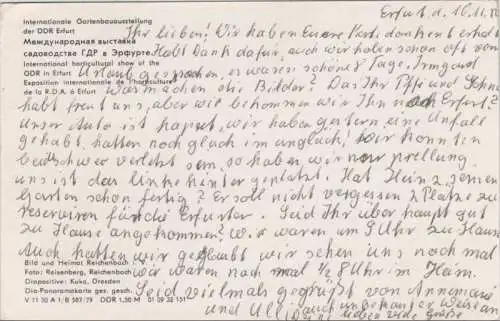 Internationale Gartenbauausstellung
der DDR Erfurt
Международная выставка
садоводства ГДР в Эрфурте
International horticultural show of the
GDR in Erfurt
Exposition internationale de l'horticulture
de la R.D.A. à Erfurt
Erfurt d. 16.11.
Ihr Lieben! Wir haben Eure Karte dankend erhalt
Habt Dank dafür, auch wir haben schon oft vom
Urlaub gesprochen, es waren schöne Tage. Irmgard
was machen die Bilder? Das Ihr
habt freut uns, aber wie bekommen wir Ihn nach Erfurt?
Unser Auto ist kaputt, wir haben gestern eine Unfall
gehabt, hatten noch gluch im unglück! wir konnten
schwer verletzt sein, so haben wir nur prellung
uns ist das linke hinter geplatzt. Hat Heinz seinen
Garten schon fertig? Er soll nicht vergessen 2 Plätze zu
reserviren für die Erfurter. Seid Ihr überhaupt gut
zu Hause angekommen? wir waren um 9 Uhr zu Hause
Auch hatten wir geglaubt wir sehen uns noch mal
wir waren noch mal 1/2 8 Uhr im Heim.
Seid vielmals gegrüßt von Annemarie
und Ulli, auch unbekannter weise an
lieben viele Grüße
Bild und Heimat Reichenbach
Foto: Reisenberg, Reichenbach
Diapositive: Kuka, Dresden
Dia-Panoramakarte ges. gesch.
V 11 30 A 1/B 587/79 DDR 1,50 M 01 09 32 151